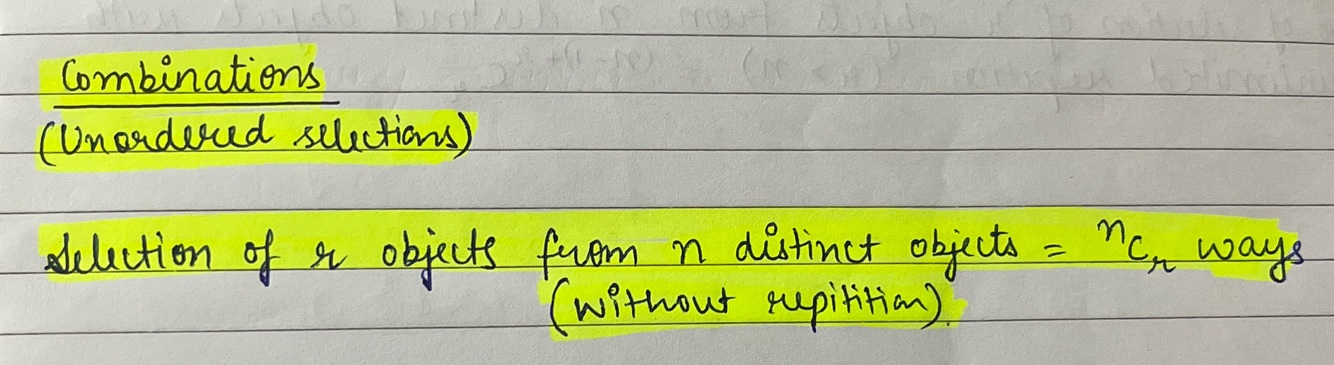 Combinations
(Unordered selections)
Selection of r objects from n distinct objects = ⁿCᵣ ways
(without repitition).